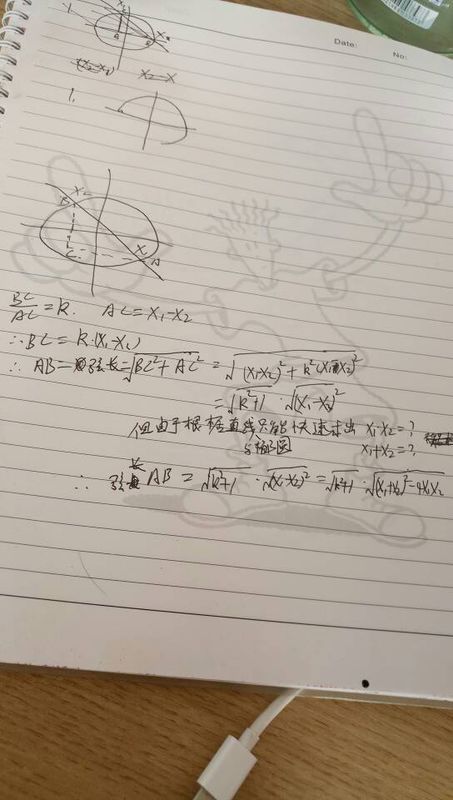 Date:
No:
X₂-X
1.
X₂
B
C
X₁
A
BC/AC=k. AC=X₁-X₂
∴BC=k·(X₁-X₂)
∴ AB=弦长=√(BC²+AC²)=√((X₁-X₂)²+k²(X₁-X₂)²)
=√(k²+1)·√((X₁-X₂)²)
但由于根据直线只能快速求出 X₁·X₂=?
与椭圆 X₁+X₂=?
∴ 弦长 AB=√(k²+1)·√((X₁-X₂)²)=√(k²+1)·√((X₁+X₂)²-4X₁X₂)